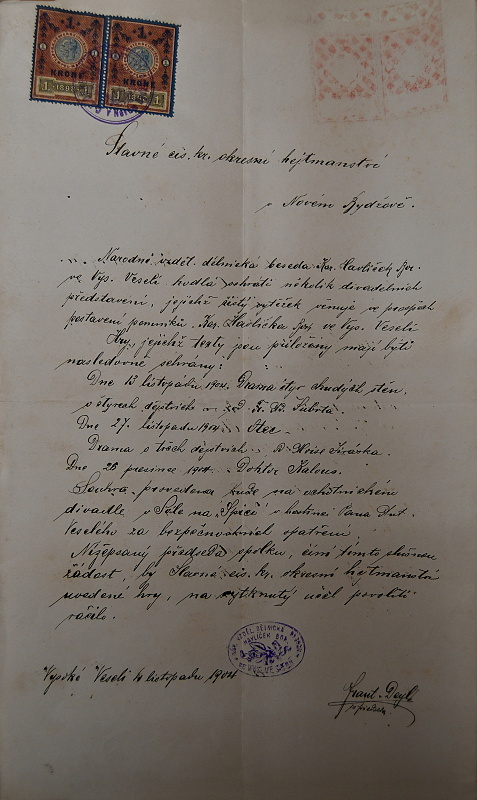 1 1
KRONE KRONE
1 1898 1 1898 1
Slavné cís. kr. okresní hejtmanství
v Novém Bydžově.
Národně vzděl. dělnická beseda Kar. Havlíček Bor.
ve Vys. Veselí hodlá sehráti několik divadelních
představení, jejichž čistý výtěžek věnuje ve prospěch
postavení pomníku Kar. Havlíčka Bor. ve Vys. Veselí
Hry, jejichž texty jsou přiloženy mají býti
následovně sehrany:
Dne 13 listopadu 1904. Drama čtyr chudých stěn
o čtyrech dějstvích od F. Šubrta.
Dne 27. listopadu 1904 Otec
Drama o třech dějstvích Aloise Jiráska.
Dne 26 prosince 1904. Doktor Kalous.
Souhra provedena bude na ochotnickém
divadle v Sále na "Špici" v hostinci Pana Ant.
Veselého za bezpečnostních opatření
Nížepsaný předseda spolku, činí tímto slušnou
žádost, by Slavné cís. kr. okresní hejtmanství
uvedené hry, na vytknutý účel povoliti
ráčilo.
VZDĚL. DĚLNICKÁ
HAVLÍČEK BOR.
Vysoké Veselí 4 listopadu 1904
Frant. Deyl
předseda